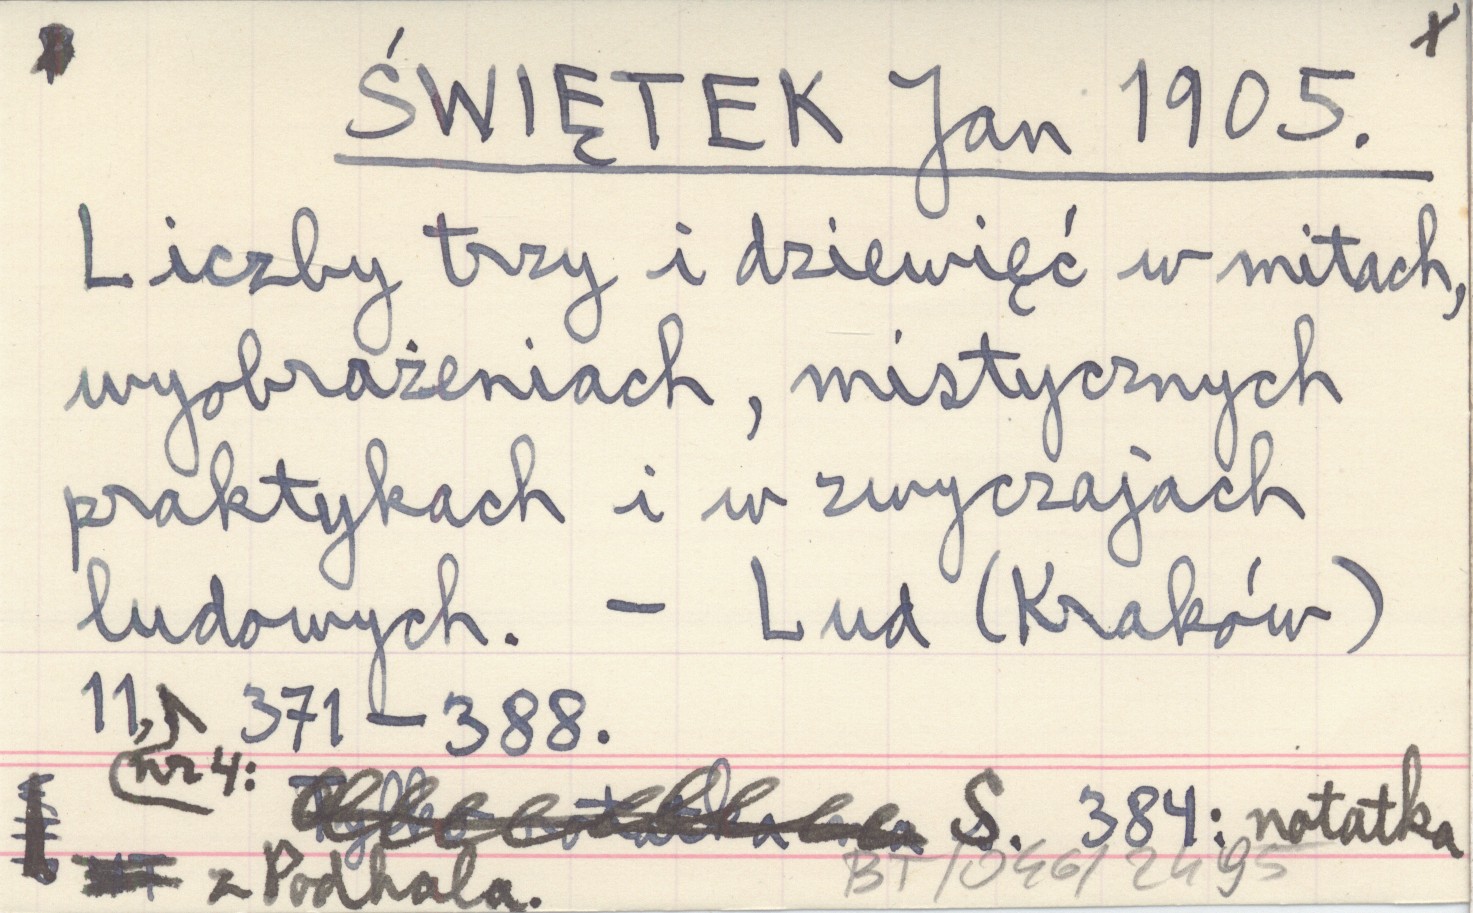 ŚWIĘTEK Jan 1905.
Liczby trzy i dziewięć w mitach,
wyobrażeniach, mistycznych
praktykach i w zwyczajach
ludowych. – Lud (Kraków)
11, 371–388.
nr 4: S. 384: notatka
z Podhala.
BT/046/2495